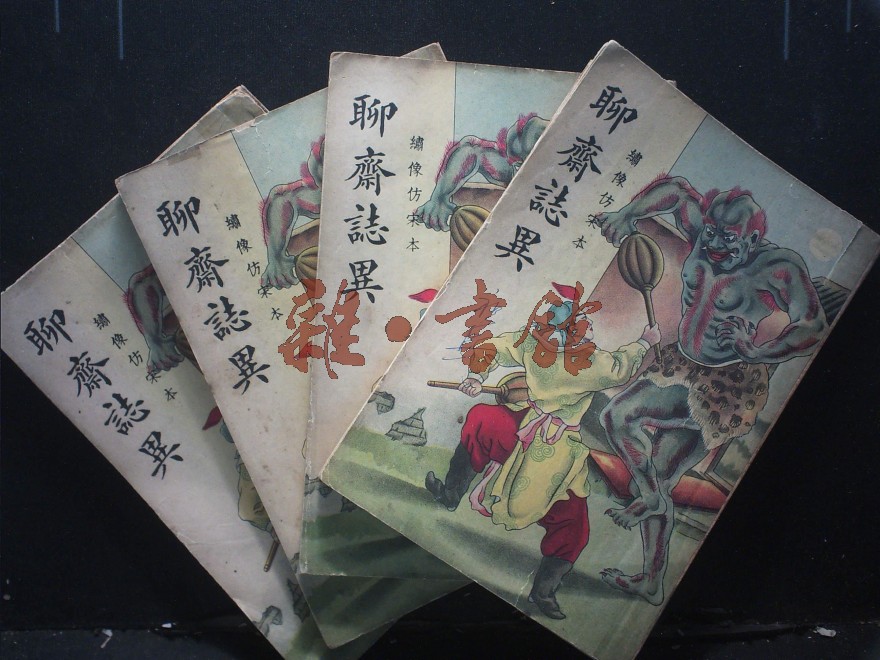 聊齋誌異
繡像仿宋本
聊齋誌異
繡像仿宋本
聊齋誌異
繡像仿宋本
聊齋誌異
繡像仿宋本
雜·書館